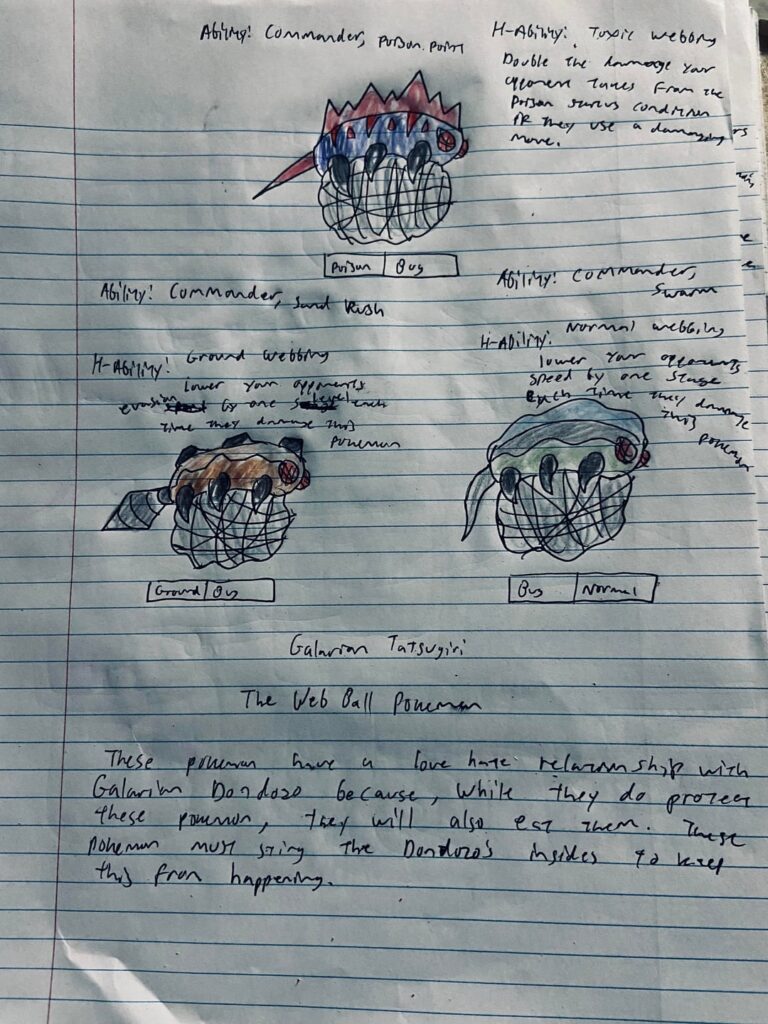 Ability: Commander, Poison Point
H-Ability: Toxic Webbing
Double the damage your
opponent takes from the
Poison status condition
if they use a damaging
move.
Poison Bug
Ability: Commander, Sand Rush
H-Ability: Ground Webbing
lower your opponents
evasion by one level each
time they damage this
pokemon
Ground Bug
Ability: Commander,
Swarm
H-Ability: Normal Webbing
lower your opponents
speed by one stage
Each time they damage
this
pokemon
Bug Normal
Galarian Tatsugiri
The Web Ball Pokemon
These pokemon have a love hate relationship with
Galarian Dondozo because, while they do protect
these pokemon, they will also eat them. These
pokemon must sting the Dondozo's insides to keep
this from happening.